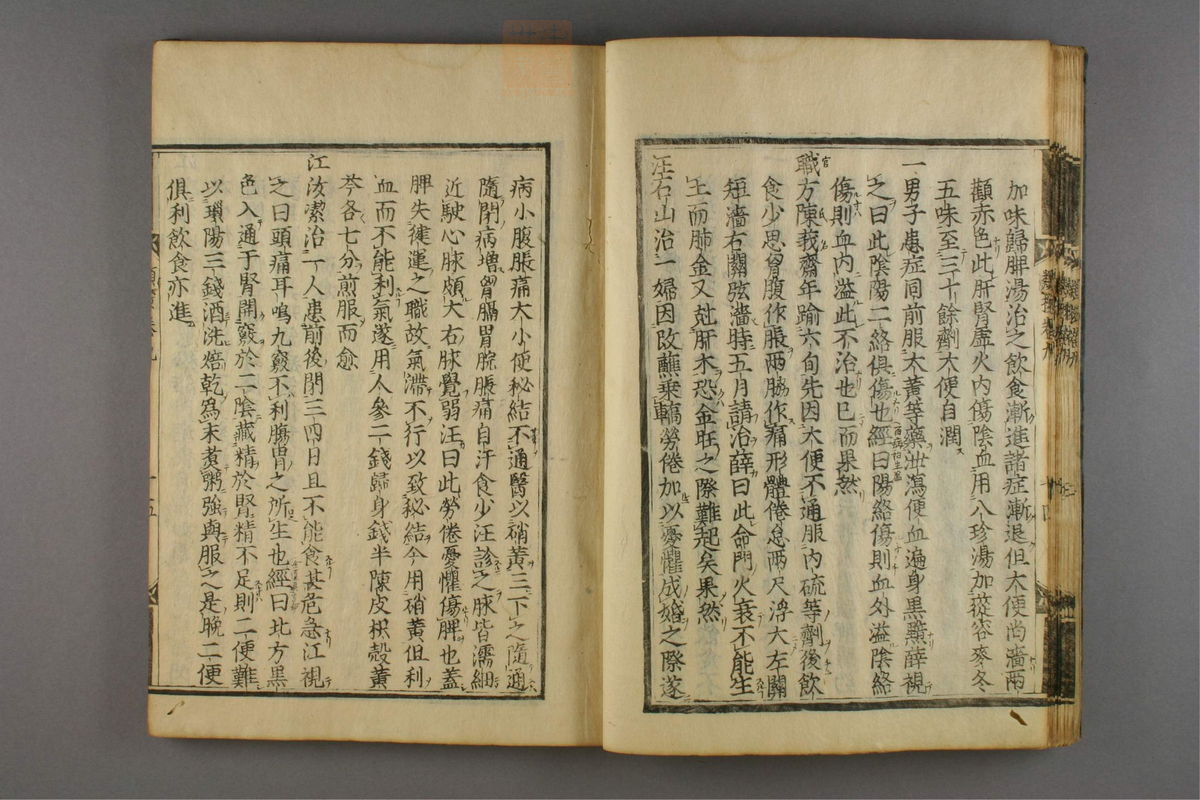 加味歸脾湯治之飲食漸進諸症漸退但大便尚濇兩
顴赤色此肝腎虛火内傷陰血用八珍湯加蓯容麥冬
五味至三十餘劑大便自潤
一男子患症同前服大黃等藥泄瀉便血遍身黑黶薛視
之曰此陰陽二絡俱傷也經曰陽絡傷則血外溢陰絡
傷則血内溢此不治也已而果然
職方陳莪齋年踰六旬先因大便不通服内硫等劑後飲
食少思胷腹作脹兩脇作痛形體倦怠兩尺浮大左關
短濇右關弦濇時五月請治薛曰此命門火衰不能生
土而肺金又尅肝木恐金旺之際難起矣果然
汪石山治一婦因改蘸乗轎勞倦加以憂懼成婚之際遂
病小腹脹痛大小便秘結不通醫以硝黃三下之隨通
隨閉病增胷膈胃脘脹痛自汗食少汪診之脉皆濡細
近駛心脉頗大右脉覺弱汪曰此勞倦憂懼傷脾也蓋
脾失健運之職故氣滯不行以致秘結今用硝黃但利
血而不能利氣遂用人參二錢歸身錢半陳皮枳殼黃
芩各七分煎服而愈
江汝潔治一人患前後閉三四日且不能食甚危急江視
之曰頭痛耳鳴九竅不利腸胃之所生也經曰北方黑
色入通于腎開竅於二陰藏精於腎精不足則二便難
以瑣陽三錢酒洗焙乾爲末煑粥強與服之是晚二便
俱利飲食亦進